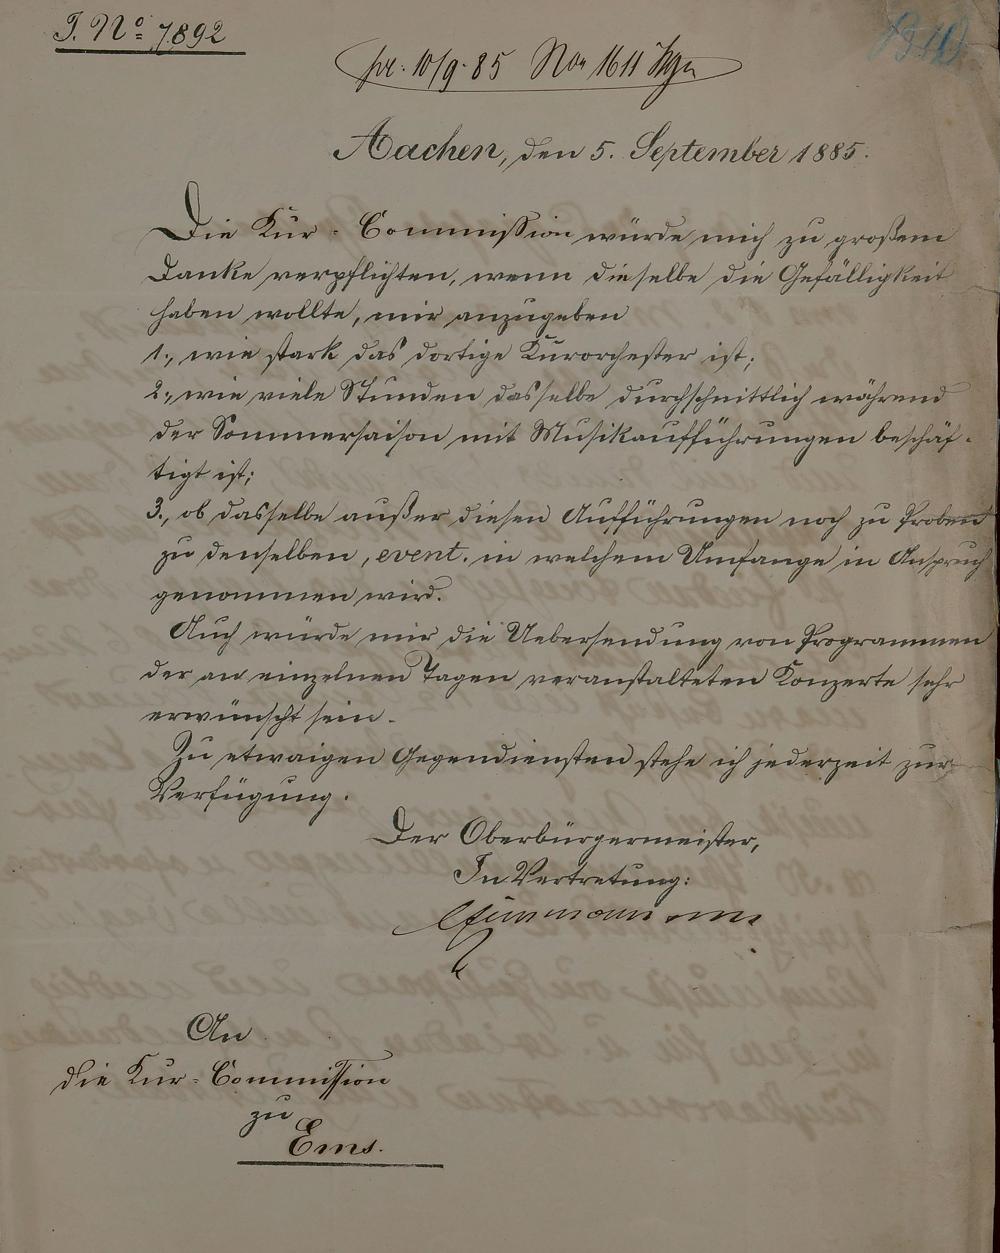 J. No 7892
pr. 10/9. 85 No 1611
Aachen, den 5. September 1885.
Die Kur-Commission würde mich zu großem
Danke verpflichten, wenn dieselbe die Gefälligkeit
haben wollte, mir anzugeben
1., wie stark das dortige Kurorchester ist;
2., wie viele Stunden dasselbe durchschnittlich während
der Sommersaison mit Musikaufführungen beschäf-
tigt ist;
3., ob dasselbe außer diesen Aufführungen noch zu Proben
zu denselben, event. in welchem Umfange in Anspruch
genommen wird.
Auch würde mir die Uebersendung von Programmen
der an einzelnen Tagen veranstalteten Konzerte sehr
erwünscht sein.
Zu etwaigen Gegendiensten stehe ich jederzeit zur
Verfügung.
Der Oberbürgermeister,
In Vertretung:
An
die Kur-Commission
zu
Ems.